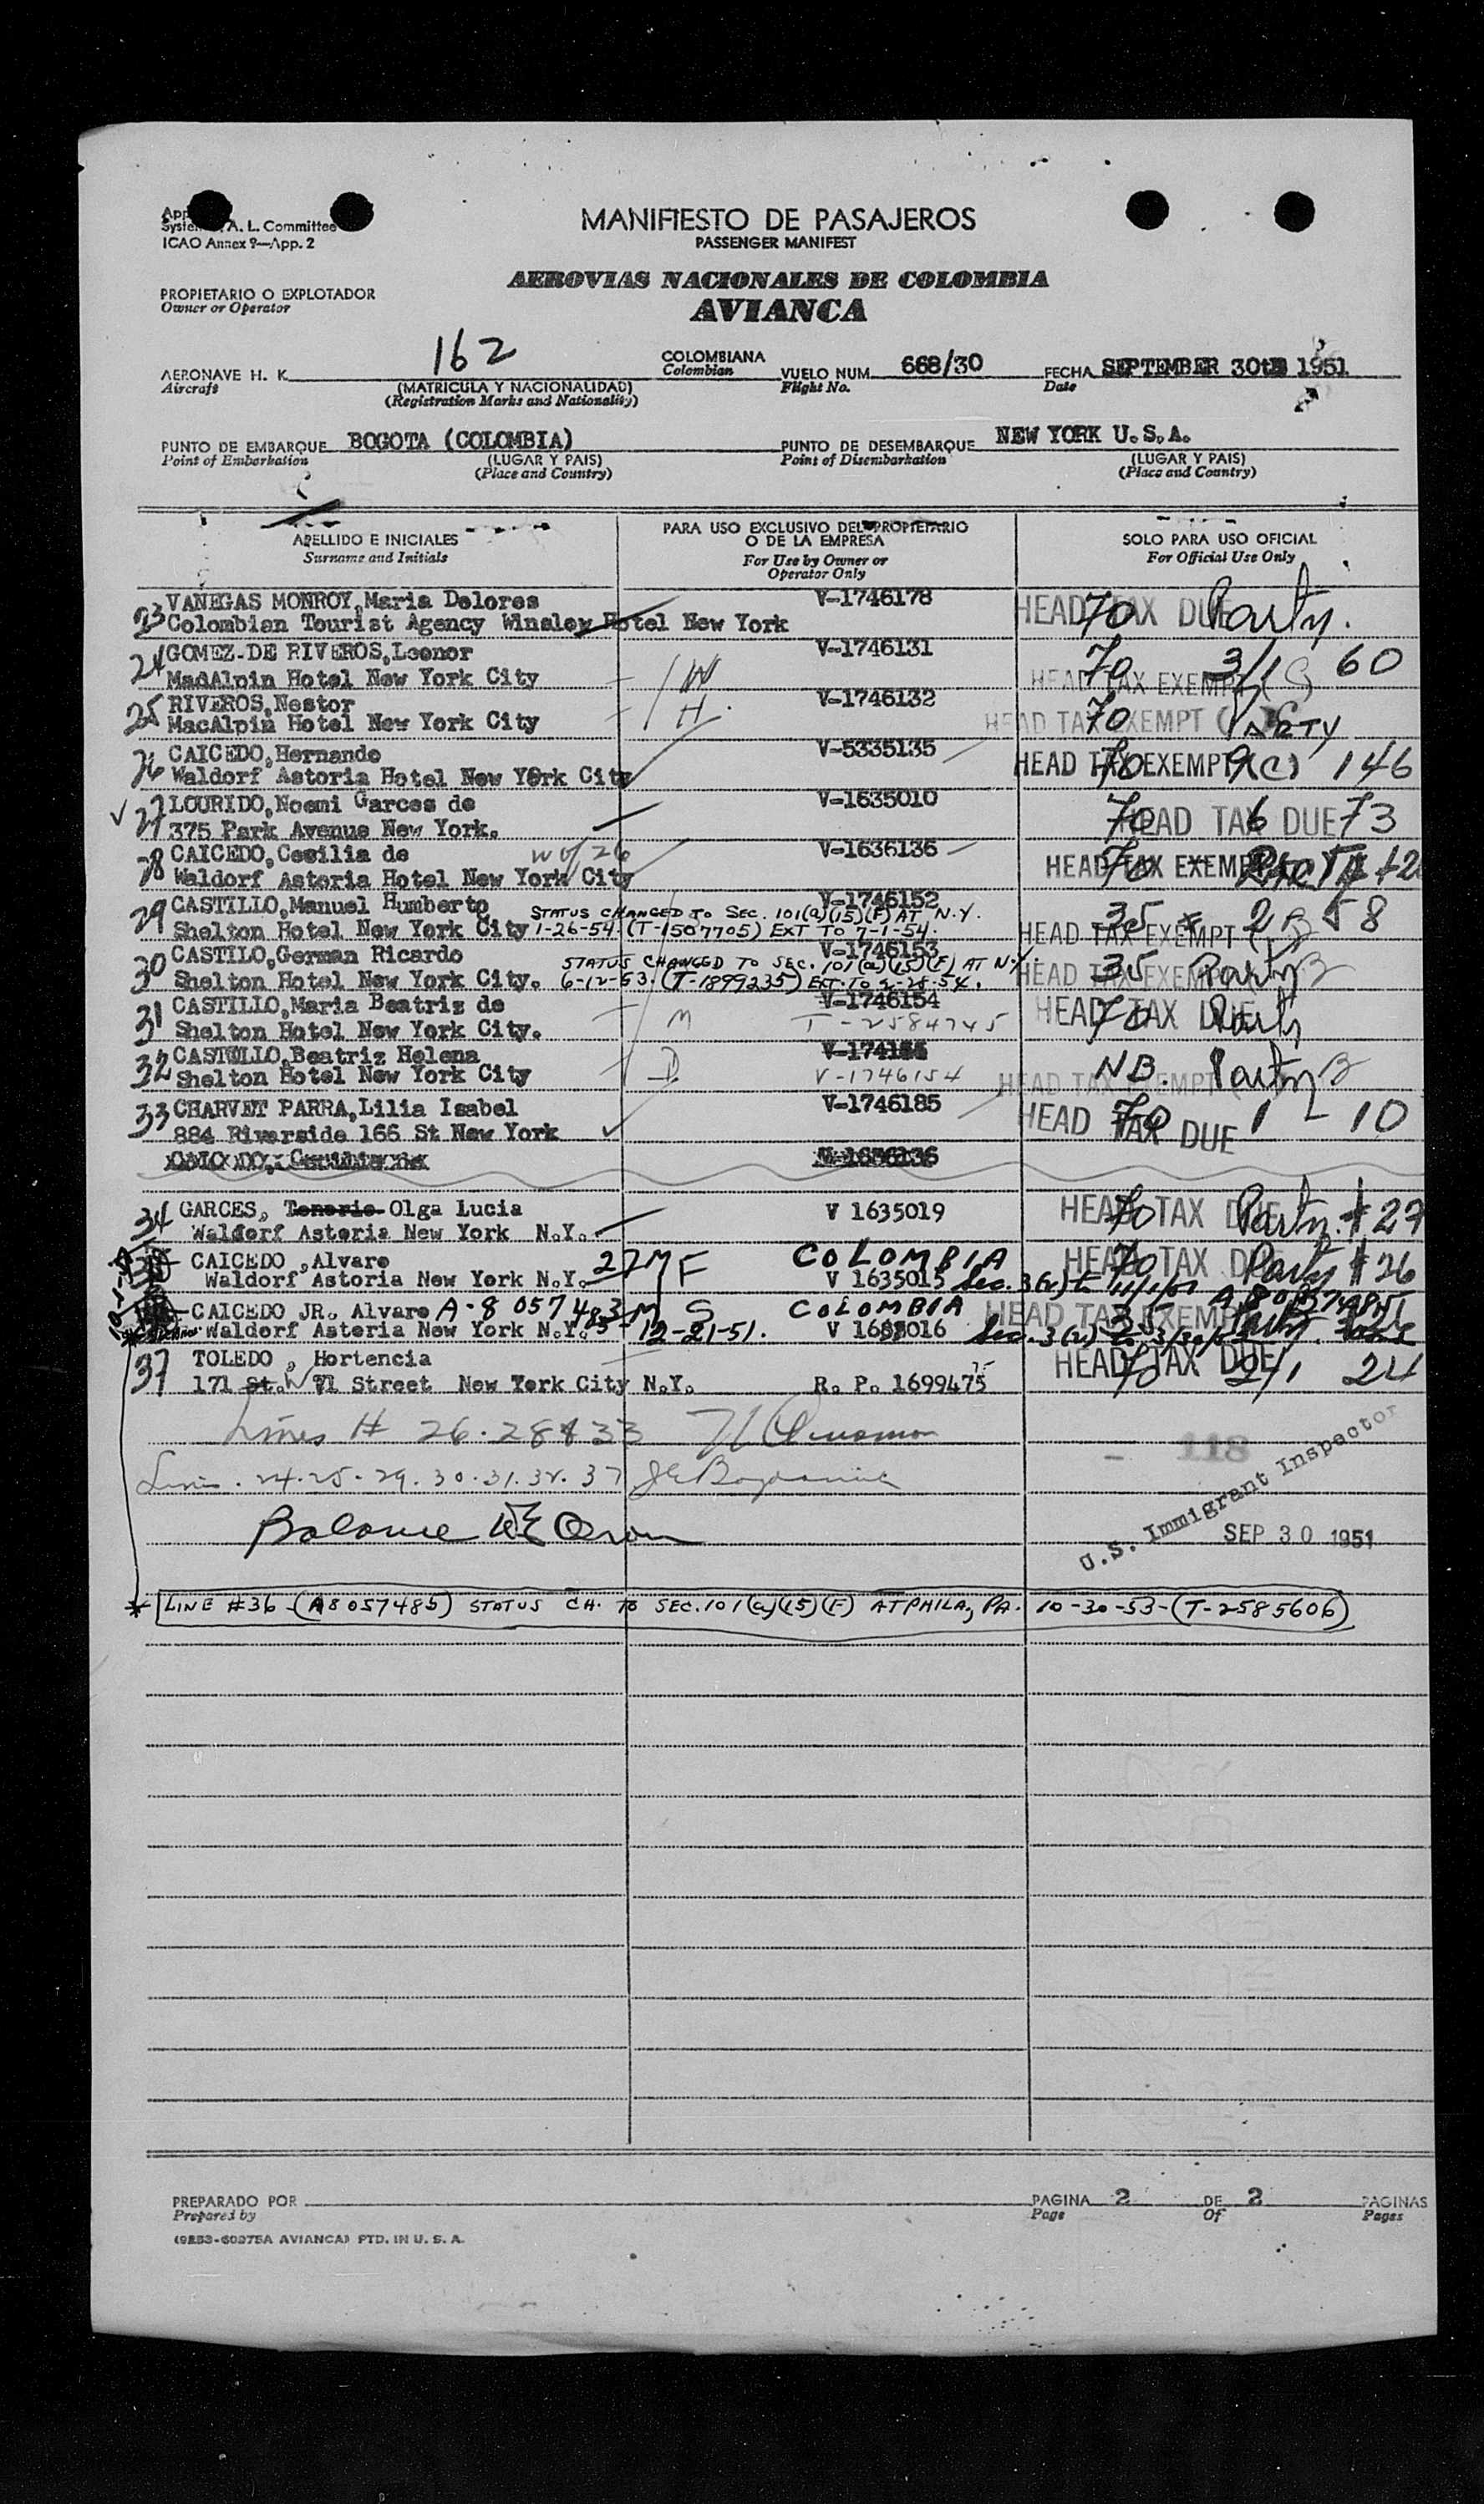 A. L. Committee
ICAO Annex 9—App. 2
MANIFIESTO DE PASAJEROS
PASSENGER MANIFEST
AEROVIAS NACIONALES DE COLOMBIA
AVIANCA
PROPIETARIO O EXPLOTADOR
Owner or Operator
AERONAVE H. K. 162 COLOMBIANA VUELO NUM. 668/30 FECHA SEPTEMBER 30th 1951
Aircraft (MATRICULA Y NACIONALIDAD) Colombian Flight No. Date
(Registration Marks and Nationality)
PUNTO DE EMBARQUE BOGOTA (COLOMBIA) PUNTO DE DESEMBARQUE NEW YORK U.S.A.
Point of Embarkation (LUGAR Y PAIS) Point of Disembarkation (LUGAR Y PAIS)
(Place and Country) (Place and Country)
APELLIDO E INICIALES PARA USO EXCLUSIVO DEL PROPIETARIO SOLO PARA USO OFICIAL
O DE LA EMPRESA
Surname and Initials For Use by Owner or For Official Use Only
Operator Only
23 VANEGAS MONROY, Maria Dolores V-1746178 HEAD TAX DUE 70 Party.
Colombian Tourist Agency Winsley Hotel New York
24 GOMEZ-DE RIVEROS, Leonor V-1746131 70 3/1 60
MadAlpin Hotel New York City W HEAD TAX EXEMPT
25 RIVEROS, Nestor V-1746132 70 PARTY
MacAlpin Hotel New York City H. HEAD TAX EXEMPT
26 CAICEDO, Hernando V-5335135 70 9(C) 146
Waldorf Astoria Hotel New York City HEAD TAX EXEMPT
✓ 27 LOURIDO, Noemi Garces de V-1635010 70 6 73
375 Park Avenue New York. HEAD TAX DUE
28 CAICEDO, Cecilia de w of 26 V-1636136 70
Waldorf Astoria Hotel New York City HEAD TAX EXEMPT
29 CASTILLO, Manuel Humberto V-1746152 35 2 B 58
STATUS CHANGED TO SEC. 101(a)(15)(F) AT N.Y.
Shelton Hotel New York City 1-26-54. (T-1507705) EXT TO 7-1-54. HEAD TAX EXEMPT
30 CASTILO, German Ricardo V-1746153 35 Party B
STATUS CHANGED TO SEC. 101(a)(15)(F) AT N.Y.
Shelton Hotel New York City. 6-12-53. (T-1899235) HEAD TAX EXEMPT
31 CASTILLO, Maria Beatriz de V-1746154 HEAD TAX DUE 70 Party
Shelton Hotel New York City. M T-2584745
32 CASTILLO, Beatriz Helena NB. Party B
Shelton Hotel New York City D V-1746154 HEAD TAX EXEMPT
33 CHARVET PARRA, Lilia Isabel V-1746185 70 1 - 10
884 Riverside 166 St New York HEAD TAX DUE
34 GARCES, Tenorio Olga Lucia V 1635019 HEAD TAX DUE 70 Party. # 27
Waldorf Astoria New York N.Y.
CAICEDO , Alvaro 27 M F COLOMBIA HEAD TAX DUE 70 Party # 26
Waldorf Astoria New York N.Y. V 1635015
CAICEDO JR. Alvaro M S COLOMBIA HEAD TAX EXEMPT
Waldorf Astoria New York N.Y. 12-21-51.
37 TOLEDO , Hortencia HEAD TAX DUE 70 24
171 St. W 71 Street New York City N.Y. R. P. 1699475
Lines # 26.28 & 33
24.25.29.30.31.32.37
Balance
118
U.S. Immigrant Inspector
SEP 30 1951
* LINE #36 (A8057485) STATUS CH. TO SEC. 101(a)(15)(F) AT PHILA, PA. 10-30-53-(T-2585606)
PREPARADO POR PAGINA 2 DE 2 PAGINAS
Prepared by Page Of Pages
(9253-60275A AVIANCA) PTD. IN U. S. A.